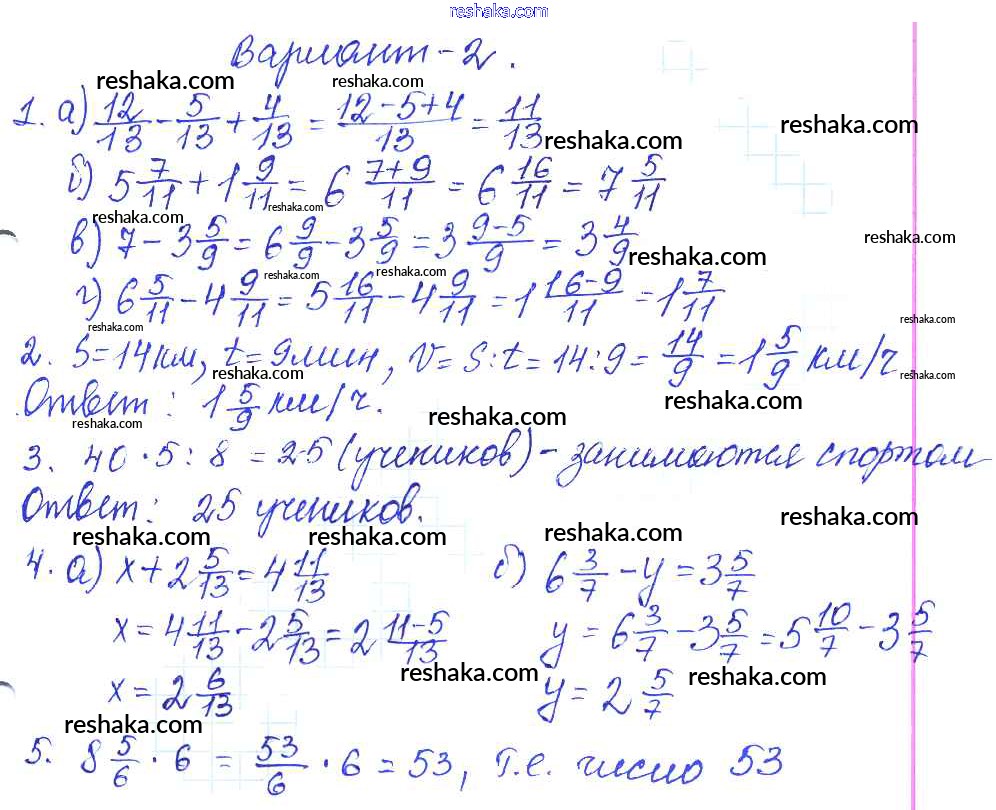 reshaka.com
Вариант-2.
reshaka.com reshaka.com
1. а) 12/13 - 5/13 + 4/13 = (12-5+4)/13 = 11/13
reshaka.com reshaka.com
б) 5 7/11 + 1 9/11 = 6 (7+9)/11 = 6 16/11 = 7 5/11
reshaka.com reshaka.com
в) 7 - 3 5/9 = 6 9/9 - 3 5/9 = 3 (9-5)/9 = 3 4/9
reshaka.com reshaka.com
reshaka.com reshaka.com
г) 6 5/11 - 4 9/11 = 5 16/11 - 4 9/11 = 1 (16-9)/11 = 1 7/11
reshaka.com reshaka.com
2. S=14км, t=9мин, V=S:t=14:9= 14/9 = 1 5/9 км/ч
reshaka.com reshaka.com
Ответ: 1 5/9 км/ч.
reshaka.com reshaka.com reshaka.com
3. 40·5:8=25 (учеников) - занимаются спортом
Ответ: 25 учеников.
reshaka.com reshaka.com reshaka.com reshaka.com
4. а) x+2 5/13 = 4 11/13
x = 4 11/13 - 2 5/13 = 2 (11-5)/13
x = 2 6/13
б) 6 3/7 - y = 3 5/7
y = 6 3/7 - 3 5/7 = 5 10/7 - 3 5/7
y = 2 5/7
reshaka.com reshaka.com
reshaka.com
5. 8 5/6 · 6 = 53/6 · 6 = 53, т.е. число 53